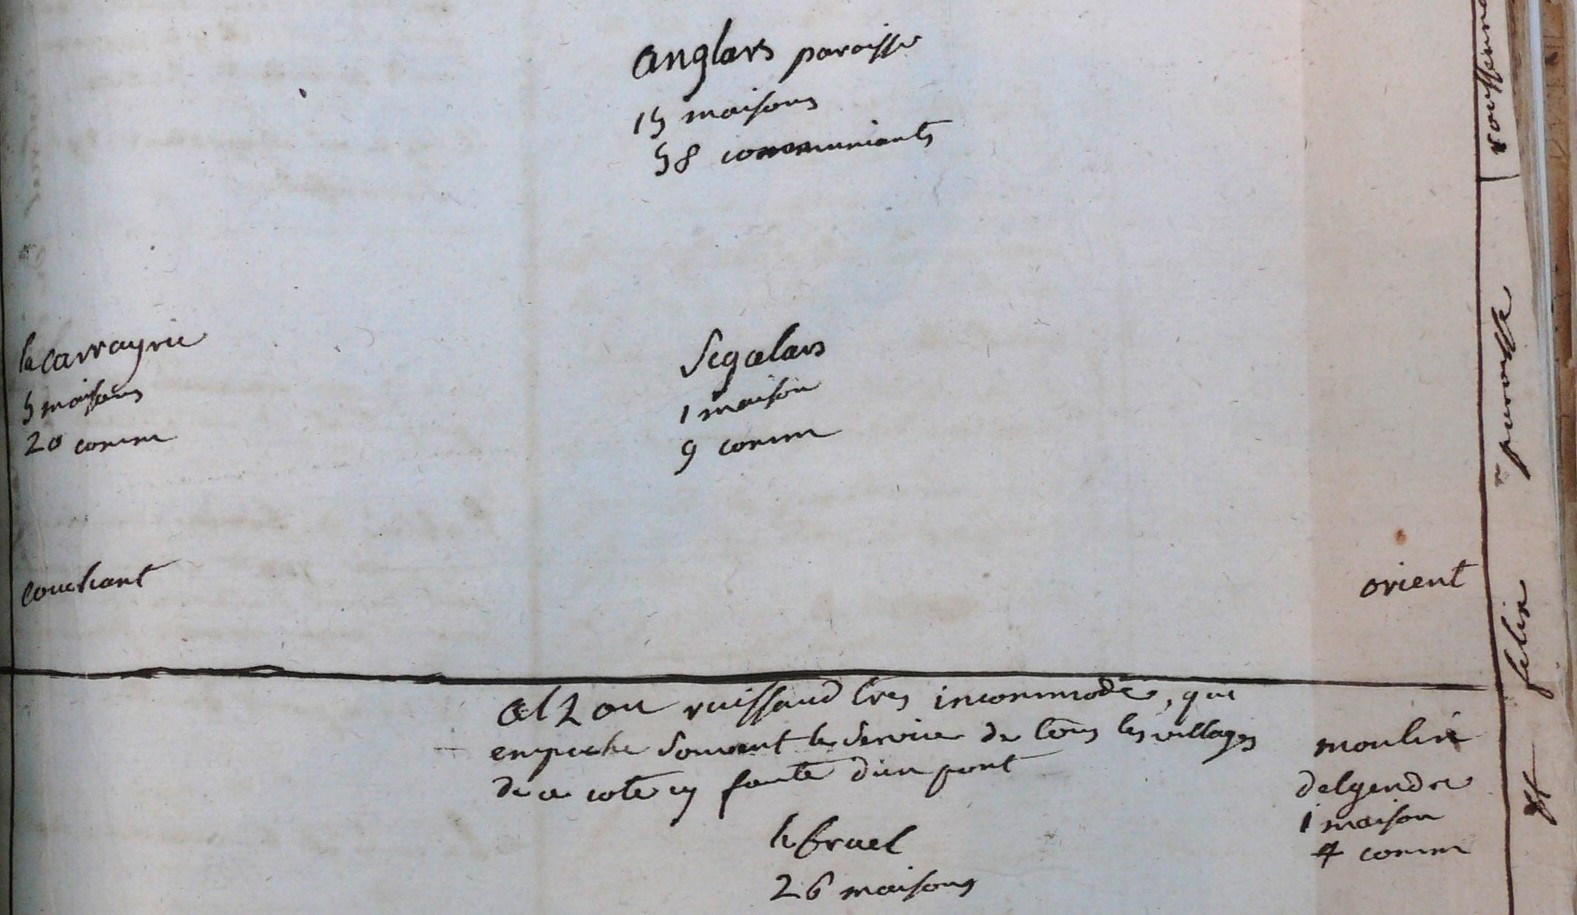 anglars paroisse
15 maisons
58 communiants
la carrayrie
5 maisons
20 comm
Segalars
1 maison
9 comm
couchant
orient
alzou ruissaud tres incommode, qui
empeche souvent le service de tous les villages
de ce coté cy faute d'un pont
moulin
delgendre
1 maison
4 comm
le bruel
26 maisons
st felix paroisse